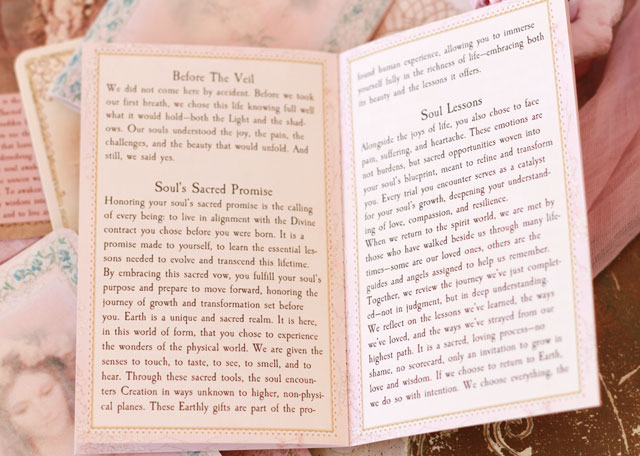 Before The Veil
We did not come here by accident. Before we took
our first breath, we chose this life knowing full well
what it would hold—both the Light and the shad-
ows. Our souls understood the joy, the pain, the
challenges, and the beauty that would unfold. And
still, we said yes.
Soul's Sacred Promise
Honoring your soul's sacred promise is the calling
of every being: to live in alignment with the Divine
contract you chose before you were born. It is a
promise made to yourself, to learn the essential les-
sons needed to evolve and transcend this lifetime.
By embracing this sacred vow, you fulfill your soul's
purpose and prepare to move forward, honoring the
journey of growth and transformation set before
you. Earth is a unique and sacred realm. It is here,
in this world of form, that you chose to experience
the wonders of the physical world. We are given the
senses to touch, to taste, to see, to smell, and to
hear. Through these sacred tools, the soul encoun-
ters Creation in ways unknown to higher, non-physi-
cal planes. These Earthly gifts are part of the pro-
found human experience, allowing you to immerse
yourself fully in the richness of life—embracing both
its beauty and the lessons it offers.
Soul Lessons
Alongside the joys of life, you also chose to face
pain, suffering, and heartache. These emotions are
not burdens, but sacred opportunities woven into
your soul's blueprint, meant to refine and transform
you. Every trial you encounter serves as a catalyst
for your soul's growth, deepening your understand-
ing of love, compassion, and resilience.
When we return to the spirit world, we are met by
those who have walked beside us through many life-
times—some are our loved ones, others are the
guides and angels assigned to help us remember.
Together, we review the journey we've just complet-
ed—not in judgment, but in deep understanding.
We reflect on the lessons we've learned, the ways
we've loved, and the ways we've strayed from our
highest path. It is a sacred, loving process—no
shame, no scorecard, only an invitation to grow in
love and wisdom. If we choose to return to Earth,
we do so with intention. We choose everything, the